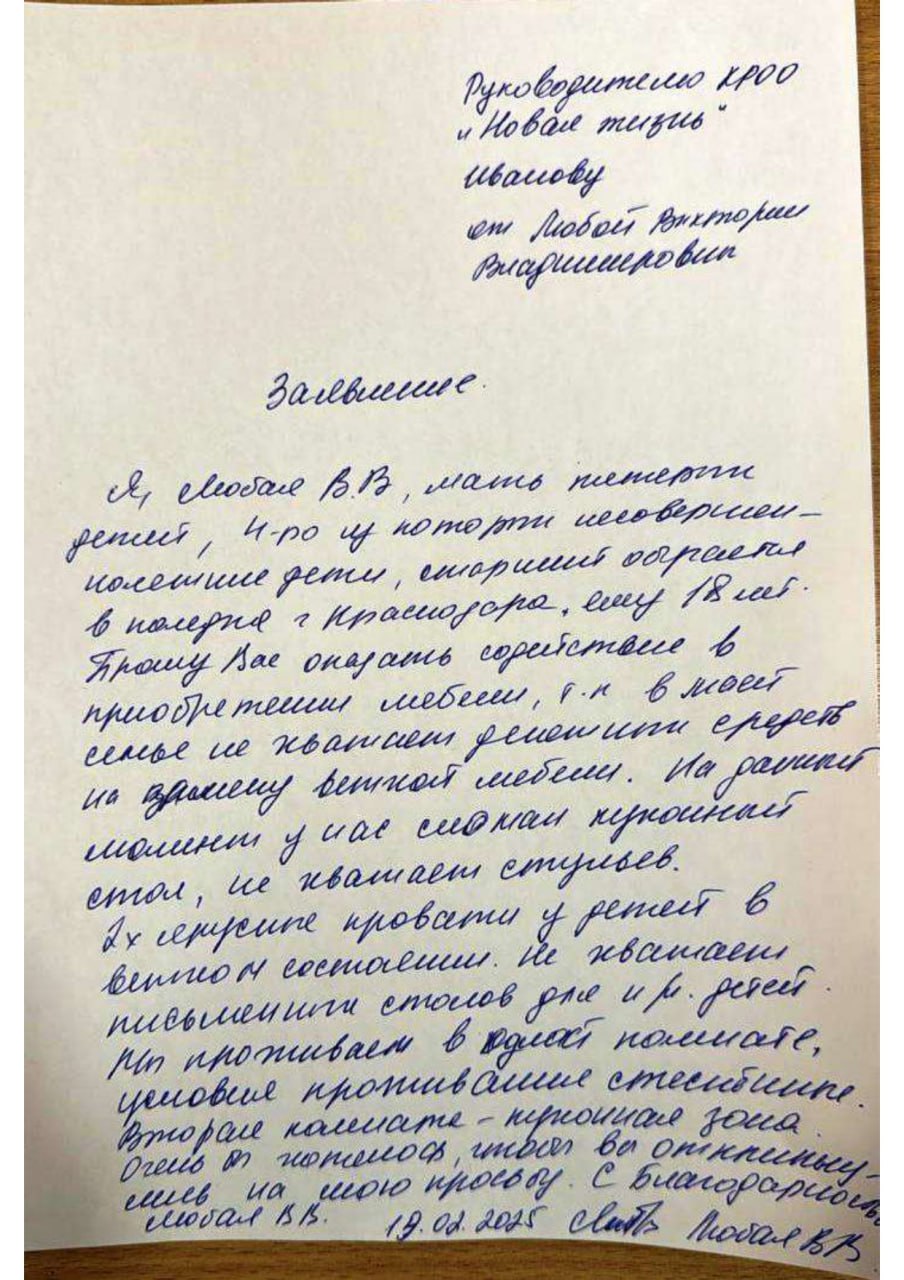 Руководителю КРОО
"Новая жизнь"
Иванову
от Любой Виктории
Владимировны
Заявление.
Я, Любая В.В, мать пятерых
детей, 4-ро из которых несовершен-
нолетние дети, старший обучается
в колледже г Краснодара, ему 18 лет.
Прошу Вас оказать содействие в
приобретении мебели, т.к в моей
семье не хватает денежных средств
на замену ветхой мебели. На данный
момент у нас сломан кухонный
стол, не хватает стульев.
2х ярусные кровати у детей в
ветхом состоянии. Не хватает
письменных столов для детей.
Мы проживаем в одной комнате,
условия проживания стеснённые.
Вторая комната - кухонная зона.
Очень бы хотелось, чтобы вы откликну-
лись на мою просьбу. С Благодарностью
Любая В.В. 19.02.2025 Любая В В